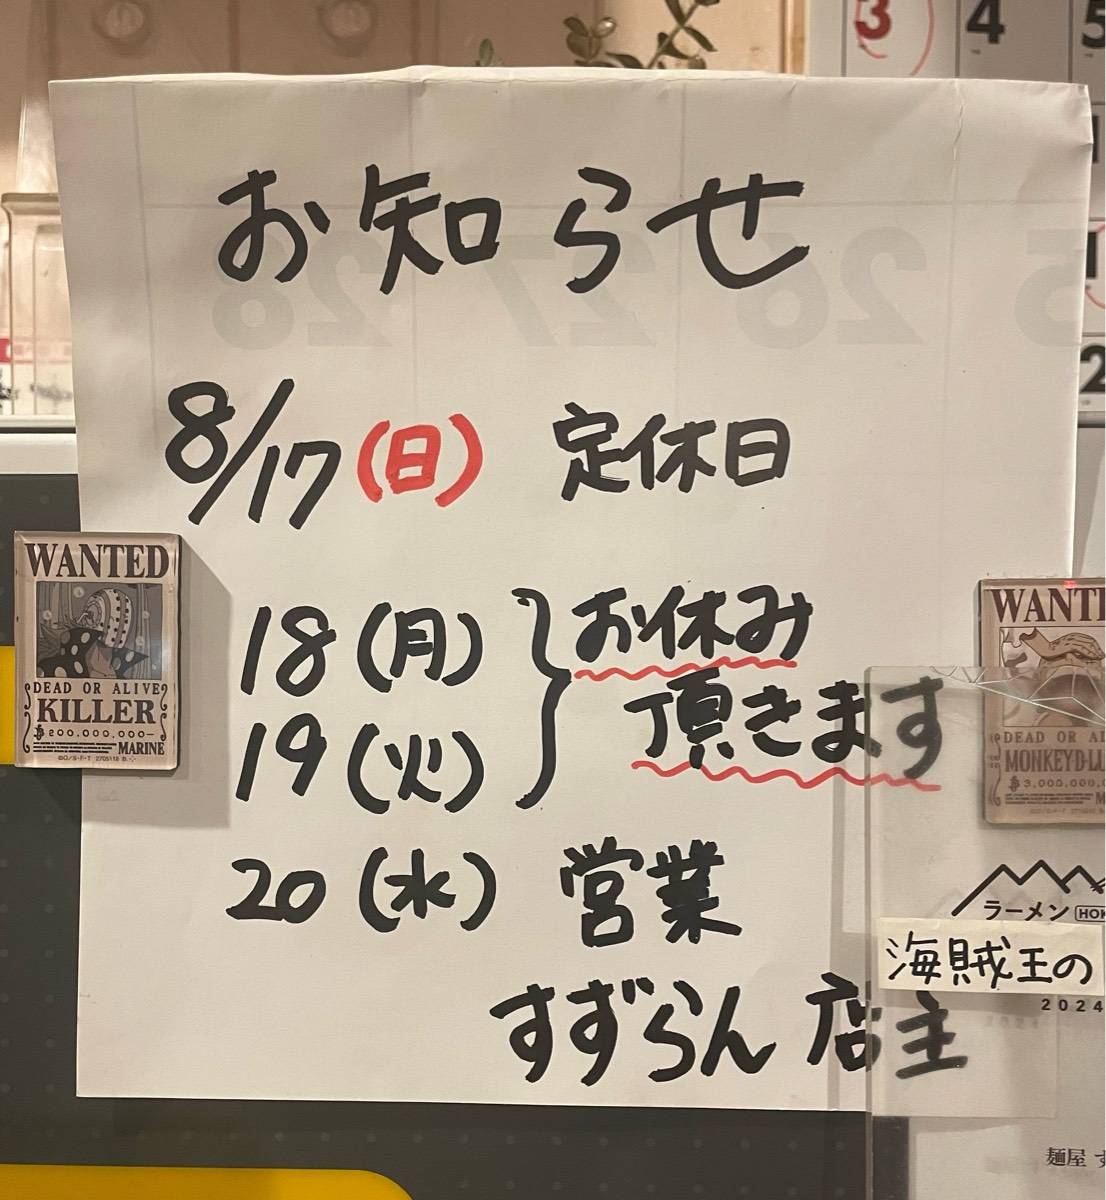 お知らせ
8/17(日) 定休日
18(月)
19(火)
お休み
頂きます
20(水) 営業
すずらん 店主
WANTED
DEAD OR ALIVE
KILLER
200,000,000-
MARINE
WANT
DEAD OR AL
MONKEY·D·LU
3,000,000,0
ラーメン HOK
海賊王の
2024
麺屋 す
3
4
5
28 27 26 25